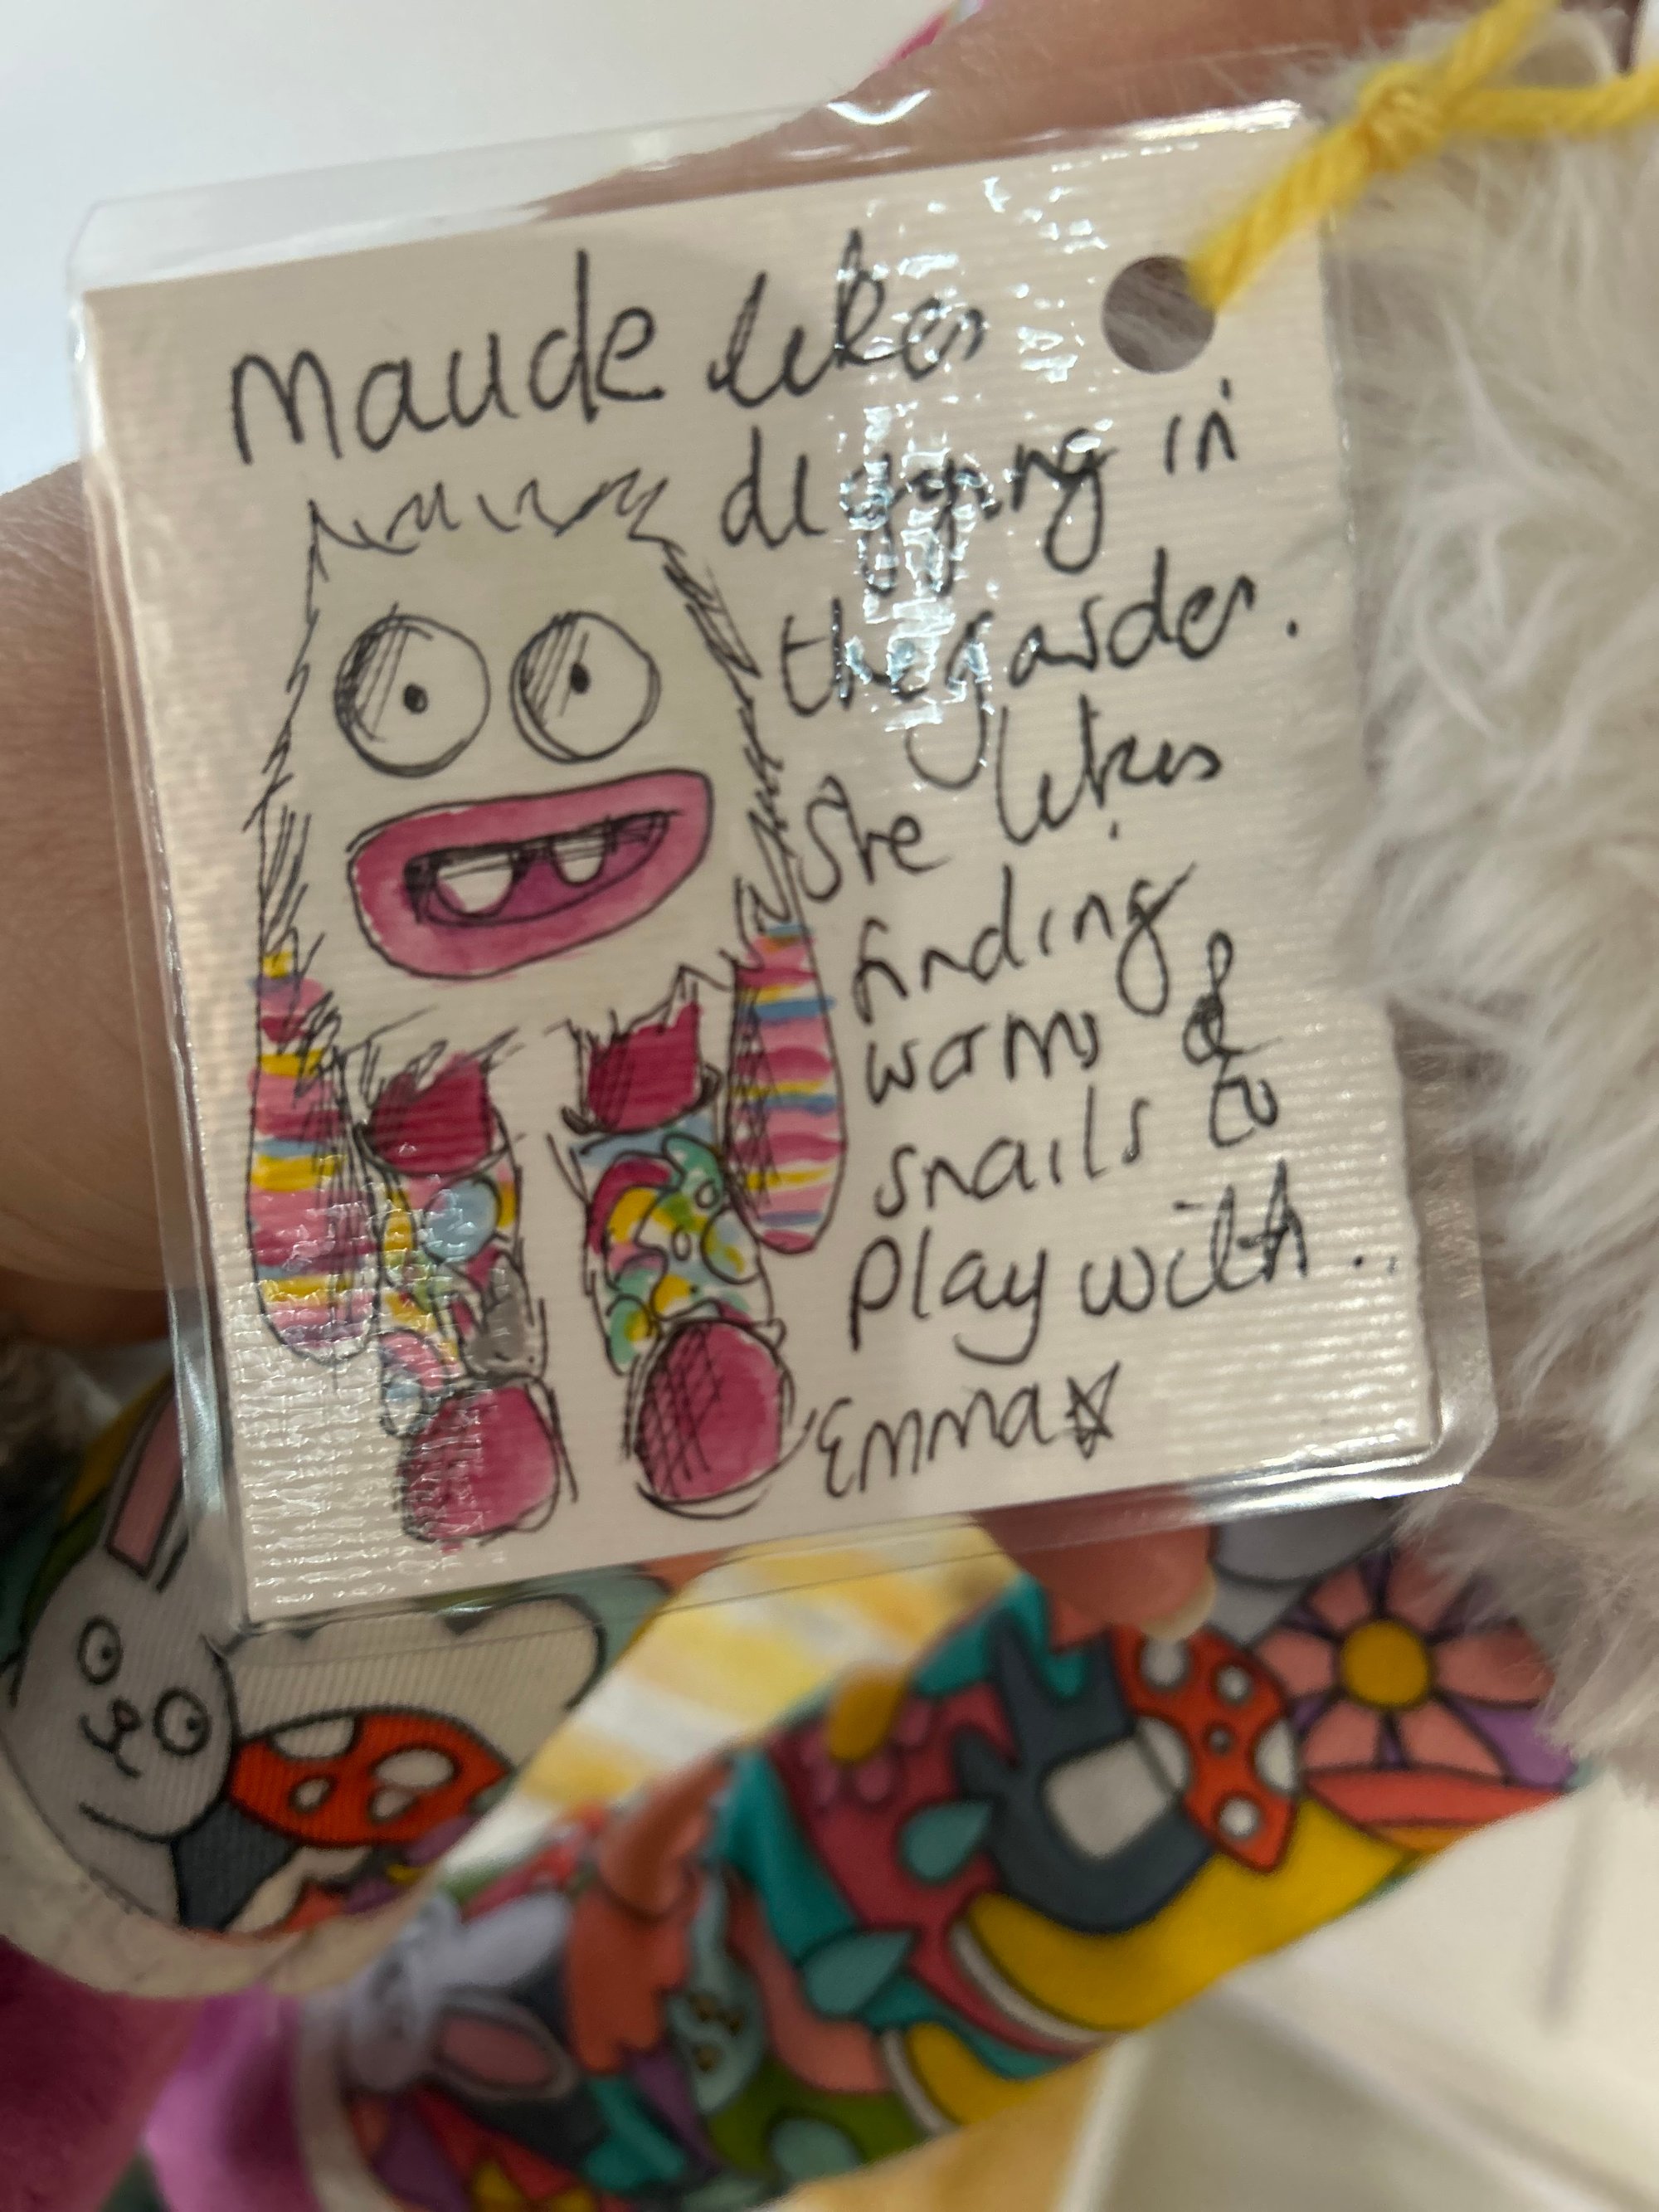 Maude likes
digging in
the garden.
She likes
finding
worms &
snails to
play with..
Emma